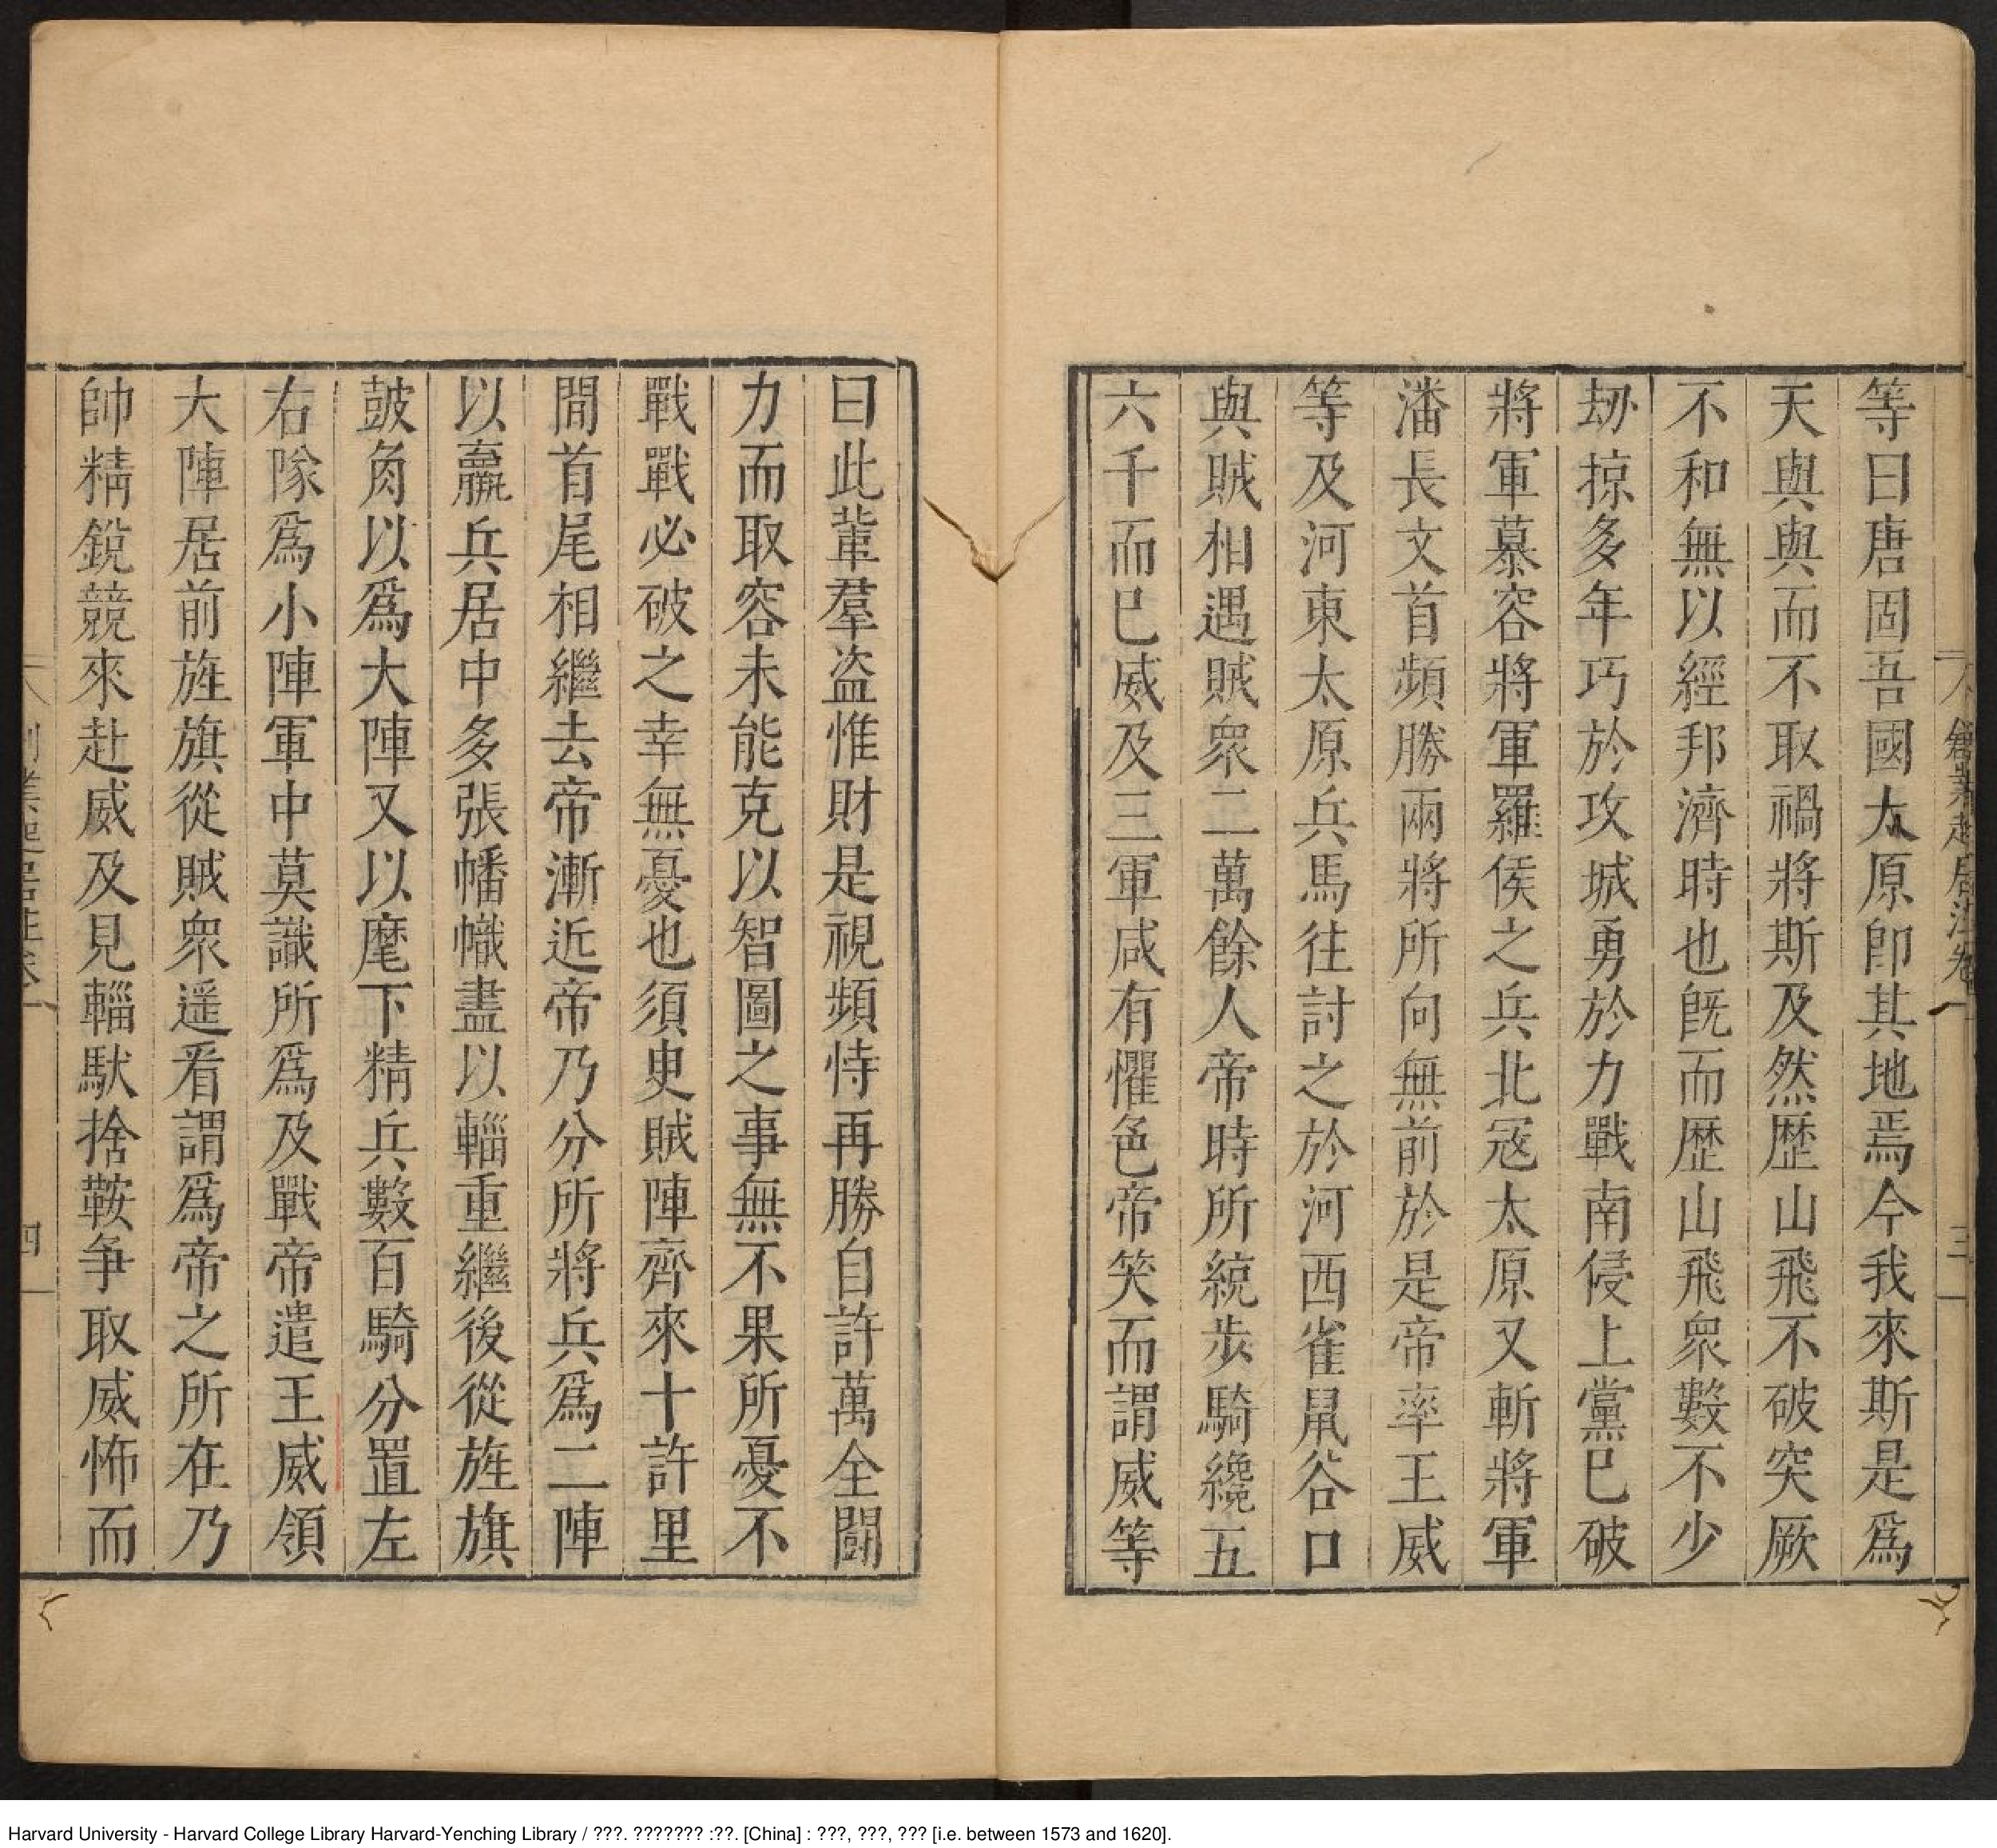 等曰唐固吾國太原即其地焉今我來斯是爲
天與與而不取禍將斯及然歷山飛不破突厥
不和無以經邦濟時也旣而歷山飛衆數不少
刼掠多年巧於攻城勇於力戰南侵上黨已破
將軍慕容將軍羅侯之兵北寇太原又斬將軍
潘長文首頻勝兩將所向無前於是帝率王威
等及河東太原兵馬往討之於河西雀鼠谷口
與賊相遇賊衆二萬餘人帝時所統步騎纔五
六千而已威及三軍咸有懼色帝笑而謂威等
曰此輩羣盗惟財是視頻恃再勝自許萬全鬪
力而取容未能克以智圖之事無不果所憂不
戰戰必破之幸無憂也須臾賊陣齊來十許里
間首尾相繼去帝漸近帝乃分所將兵爲二陣
以羸兵居中多張幡幟盡以輜重繼後從旌旗
鼓角以爲大陣又以麾下精兵數百騎分置左
右隊爲小陣軍中莫識所爲及戰帝遣王威領
大陣居前旌旗從賊衆遥看謂爲帝之所在乃
帥精銳競來赴威及見輜馱捨鞍争取威怖而
創業起居注卷一
三
四
Harvard University - Harvard College Library Harvard-Yenching Library / ???. ??????? :??. [China] : ???, ???, ??? [i.e. between 1573 and 1620].